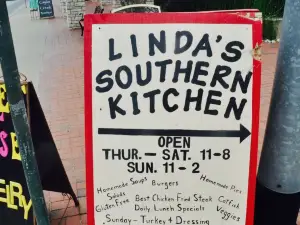 LINDA'S
SOUTHERN
KITCHEN
OPEN
THUR. - SAT. 11-8
SUN. 11-2
Homemade Soup's Burgers Homemade Pies
Salads Catfish
Gluten Free Best Chicken Fried Steak Veggies
Daily Lunch Specials
Sunday - Turkey & Dressing